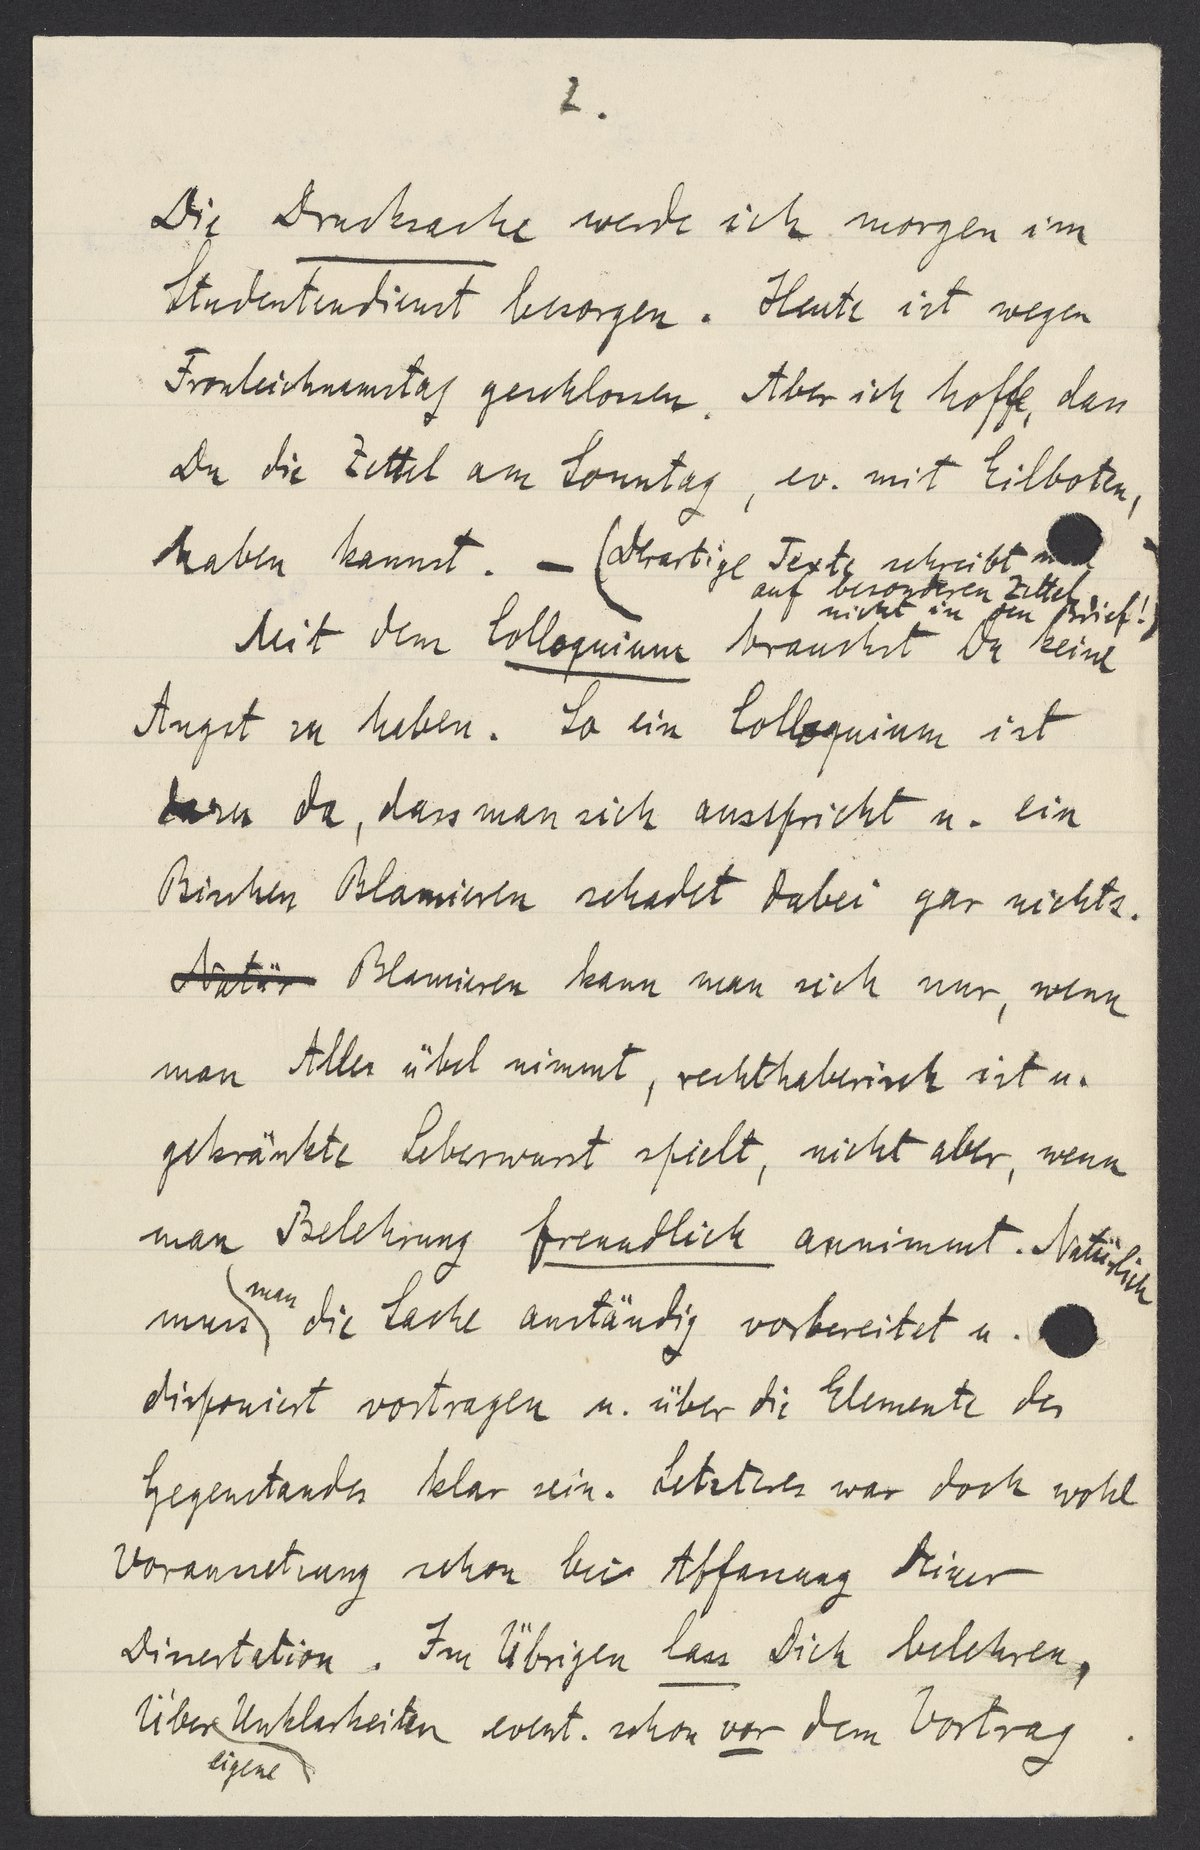 2.
Die Drucksache werde ich morgen im
Studentendienst besorgen. Heute ist wegen
Fronleichnamstag geschlossen. Aber ich hoffe, dass
Du die Zettel am Sonntag, ev. mit Eilboten,
haben kannst. — (Derartige Texte schreibt man
auf besonderen Zettel,
nicht in den Brief!)
Mit dem Colloquium brauchst Du keine
Angst zu haben. So ein Colloquium ist
dazu da, dass man sich ausspricht u. ein
Bischen Blamieren schadet dabei gar nichts.
Natür Blamieren kann man sich nur, wenn
man Alles übel nimmt, rechthaberisch ist u.
gekränkte Leberwurst spielt, nicht aber, wenn
man Belehrung freundlich annimmt. Natürlich
muss man die Sache anständig vorbereitet u.
disponiert vortragen u. über die Elemente des
Gegenstandes klar sein. Letzteres war doch wohl
Voraussetzung schon bei Abfassung Deiner
Dissertation. Im Übrigen lass Dich belehren,
Über eigene Unklarheiten event. schon vor dem Vortrag.